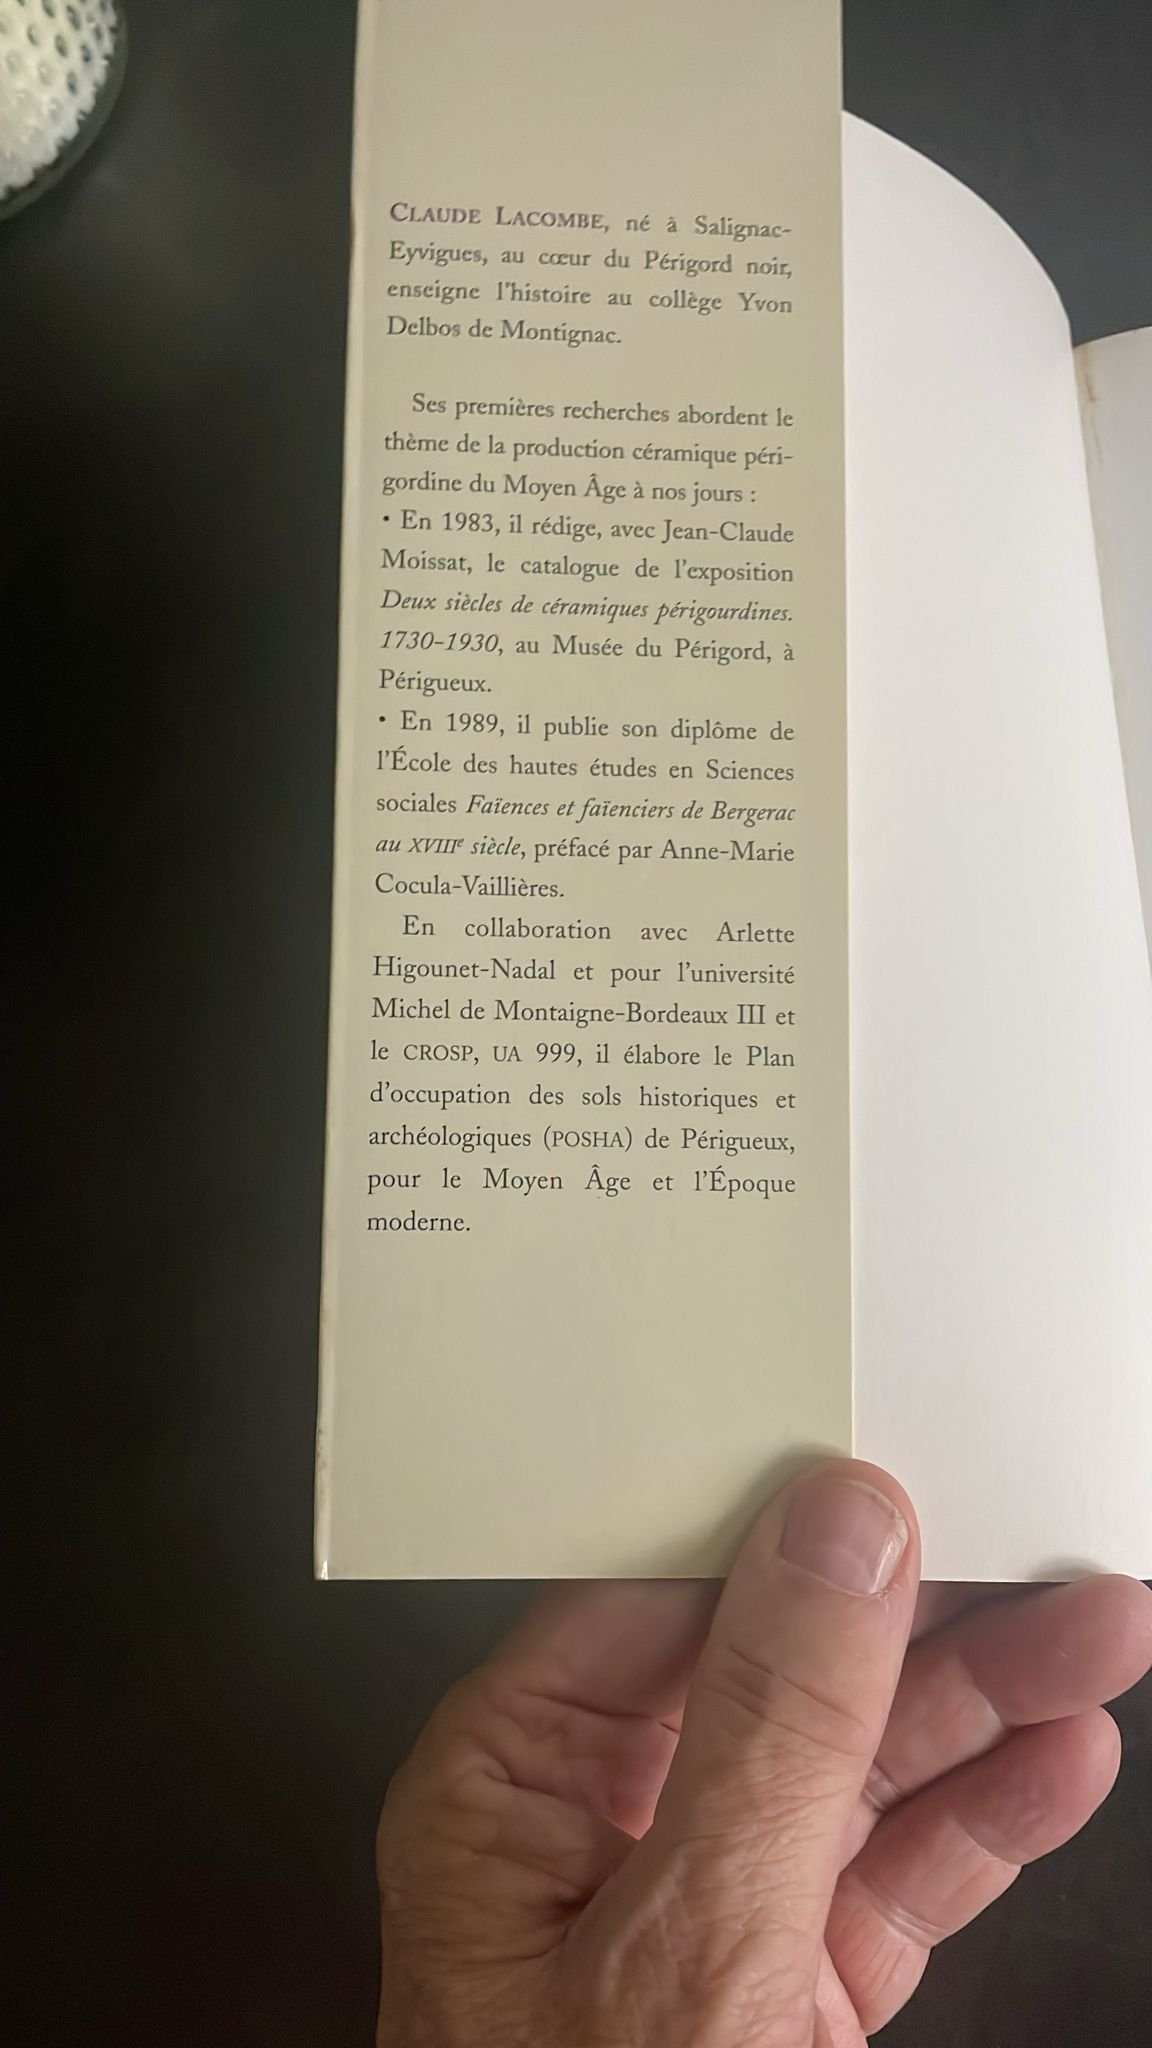 CLAUDE LACOMBE, né à Salignac-
Eyvigues, au cœur du Périgord noir,
enseigne l'histoire au collège Yvon
Delbos de Montignac.
Ses premières recherches abordent le
thème de la production céramique péri-
gordine du Moyen Âge à nos jours :
• En 1983, il rédige, avec Jean-Claude
Moissat, le catalogue de l'exposition
Deux siècles de céramiques périgourdines.
1730-1930, au Musée du Périgord, à
Périgueux.
• En 1989, il publie son diplôme de
l'École des hautes études en Sciences
sociales Faïences et faïenciers de Bergerac
au XVIIIe siècle, préfacé par Anne-Marie
Cocula-Vaillières.
En collaboration avec Arlette
Higounet-Nadal et pour l'université
Michel de Montaigne-Bordeaux III et
le CROSP, UA 999, il élabore le Plan
d'occupation des sols historiques et
archéologiques (POSHA) de Périgueux,
pour le Moyen Âge et l'Époque
moderne.